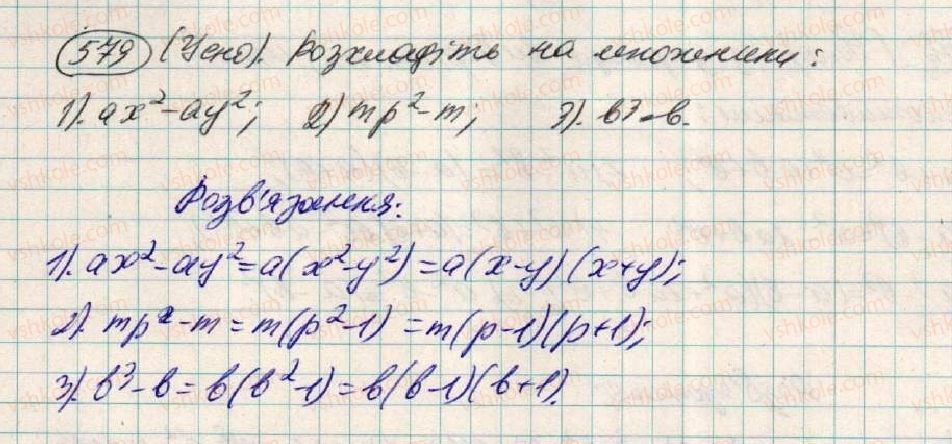 579 (Усно). Розкладіть на множники:
1). ax² - ay²; 2) mp² - m; 3). b³ - b.
Розв'язання:
1). ax² - ay² = a(x² - y²) = a(x - y)(x + y);
2). mp² - m = m(p² - 1) = m(p - 1)(p + 1);
3). b³ - b = b(b² - 1) = b(b - 1)(b + 1).